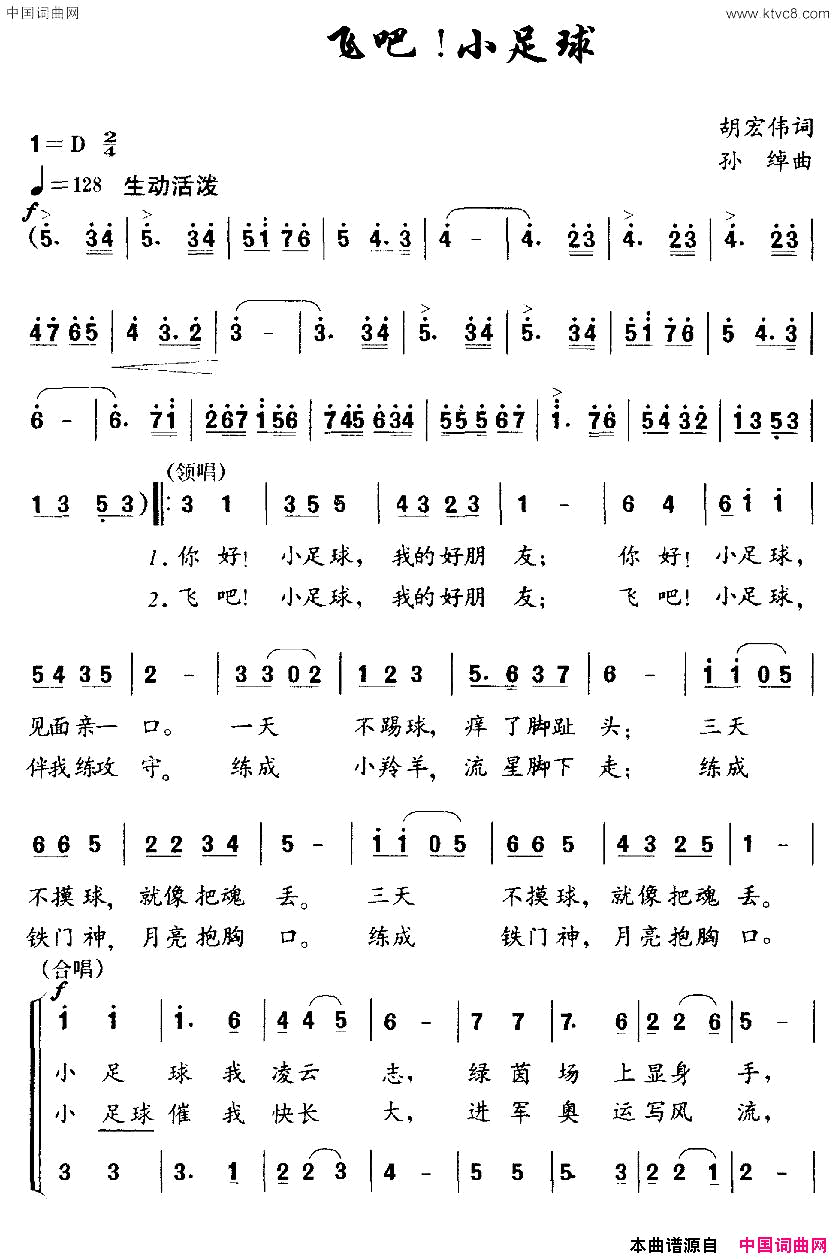 中国词曲网
www.ktvc8.com
飞吧！小足球
胡宏伟词
孙 绰曲
1=D 2/4
♩=128 生动活泼
f
(5. 34 | 5. 34 | 51 76 | 5 4.3 | 4 - | 4. 23 | 4. 23 | 4. 23 |
47 65 | 4 3.2 | 3 - | 3. 34 | 5. 34 | 5. 34 | 51 76 | 5 4.3 |
6 - | 6. 71 | 267 156 | 745 634 | 555 67 | 1. 76 | 54 32 | 13 53 |
(领唱)
13 53) ‖: 3 1 | 35 5 | 43 23 | 1 - | 6 4 | 61 1 |
1.你 好！ 小足球， 我的好朋 友； 你 好！ 小足球，
2.飞 吧！ 小足球， 我的好朋 友； 飞 吧！ 小足球，
54 35 | 2 - | 33 02 | 12 3 | 5.6 37 | 6 - | 11 05 |
见面亲一 口。 一天 不踢球， 痒了脚趾 头； 三天
伴我练攻 守。 练成 小羚羊， 流星脚下 走； 练成
66 5 | 22 34 | 5 - | 11 05 | 66 5 | 43 25 | 1 - |
不摸球， 就像把魂 丢。 三天 不摸球， 就像把魂 丢。
铁门神， 月亮抱胸 口。 练成 铁门神， 月亮抱胸 口。
(合唱)
f
1 1 | 1. 6 | 44 5 | 6 - | 7 7 | 7. 6 | 22 6 | 5 - |
小 足 球 我 凌云 志， 绿 茵 场 上 显身 手，
小 足球 催 我 快长 大， 进 军 奥 运 写风 流，
3 3 | 3. 1 | 22 3 | 4 - | 5 5 | 5. 3 | 22 1 | 2 - |
本曲谱源自 中国词曲网